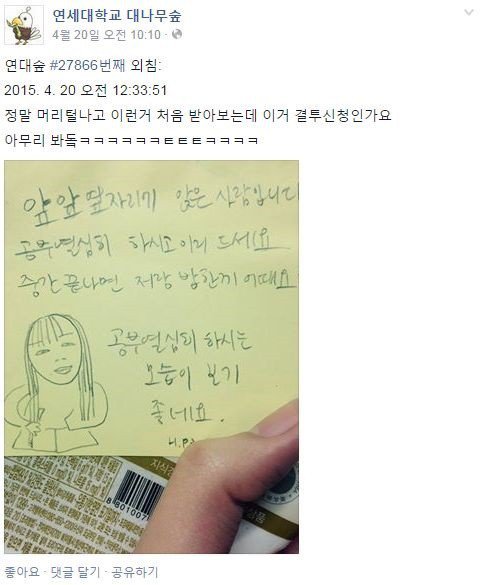 연세대학교 대나무숲
4월 20일 오전 10:10 ·
연대숲 #27866번째 외침:
2015. 4. 20 오전 12:33:51
정말 머리털나고 이런거 처음 받아보는데 이거 결투신청인가요
아무리 봐돜ㅋㅋㅋㅋㅋㅌㅌㅌㅋㅋㅋㅋ
앞 앞 옆자리가 앉은 사람입니다
공부열심히 하시고 이거 드세요
중간 끝나면 저랑 밥한끼 어때요
공부열심히 하시는
모습이 보기
좋네요.
지식
8 801007
상품
좋아요 · 댓글 달기 · 공유하기